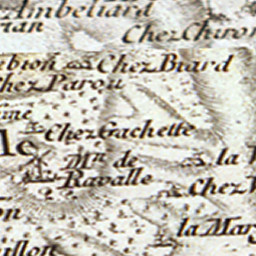 Imbeliard
rian
Chez Chiron
bion Chez Biard
hez Parou
ine
Chez Gachette
Mⁱⁿ de
Ravalle
la
Chez
on
la Mar
illon